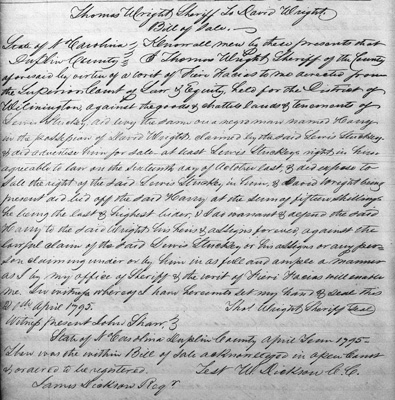 Thomas Wright Sheriff To David Wright
Bill of Sale.
State of N Carolina } Know all men by these presents that
Duplin County } I Thomas Wright, Sheriff of the County
aforesaid by virtue of a writ of Fieri Facias to me directed from
the Superior Court of Law & Equity held for the District of
Wilmington, against the goods & chattels lands & tenements of
Lewis Stuckey did levy the same on a negro man named Harry
in the possession of David Wright claimed by the said Lewis Stuckey
& did advertise him for sale at least Lewis Stuckey right in him
agreeable to law on the sixteenth day of October last, & did expose to
Sale the right of the said Lewis Stuckey in him, & David Wright being
present did bid off the said Harry at the sum of fifteen Shillings
he being the last & highest bider, I do warrant & defend the said
Harry to the said Wright his heirs & assigns forever against the
lawful claim of the said Lewis Stuckey or his assigns or any per-
son claiming under or by him in as full and ample a manner
as I by my office of Sheriff & the writ of Fieri Facias will enable
me. In witness whereof I have hereunto set my hand & seal this
21st April 1795. Thos Wright Sheriff Seal
Witness present John Shaw. }
State of N Carolina Duplin County April Term 1795
Then was the within Bill of Sale acknowledged in open Court
& ordered to be registered. Test W Dickson C.C.
James Dickson Regr